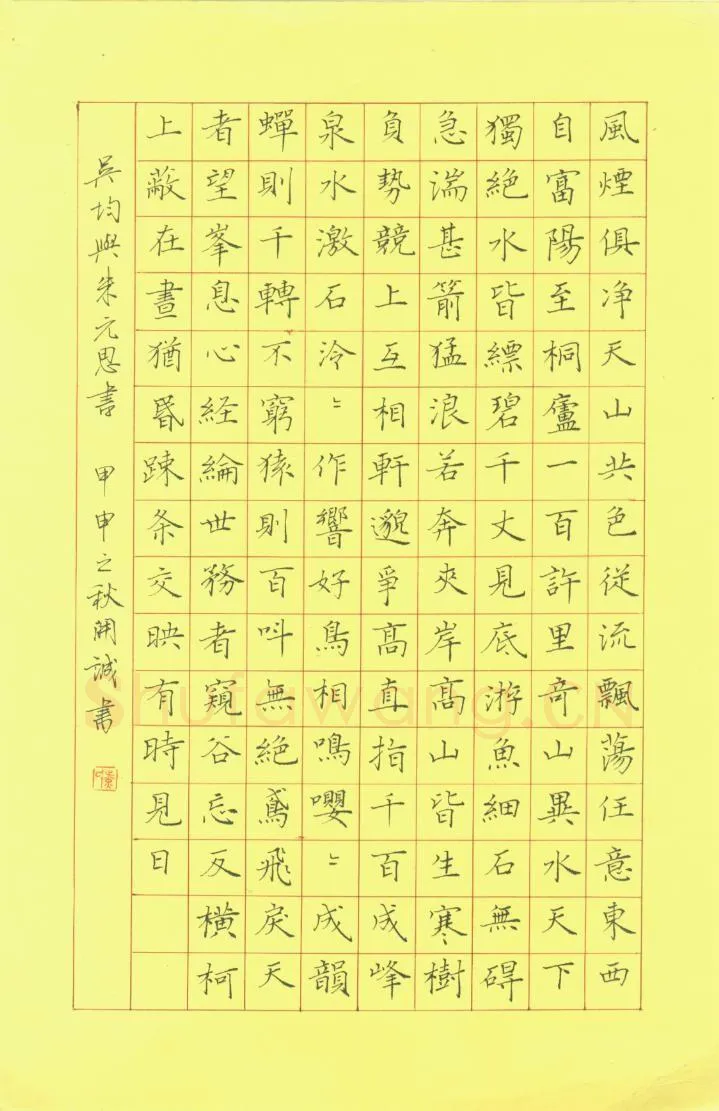 風煙俱净天山共色従流飄蕩任意東西
自富陽至桐廬一百許里奇山異水天下
獨絶水皆縹碧千丈見底游魚細石無碍
急湍甚箭猛浪若奔夾岸高山皆生寒樹
負勢競上互相軒邈爭高直指千百成峰
泉水激石泠〻作響好鳥相鳴嚶〻成韻
蟬則千轉不窮猿則百叫無絶鳶飛戾天
者望峯息心経綸世務者窺谷忘反横柯
上蔽在晝猶昬踈条交映有時見日
吳均與朱元思書 甲申之秋開誠書
Shufawang.CN